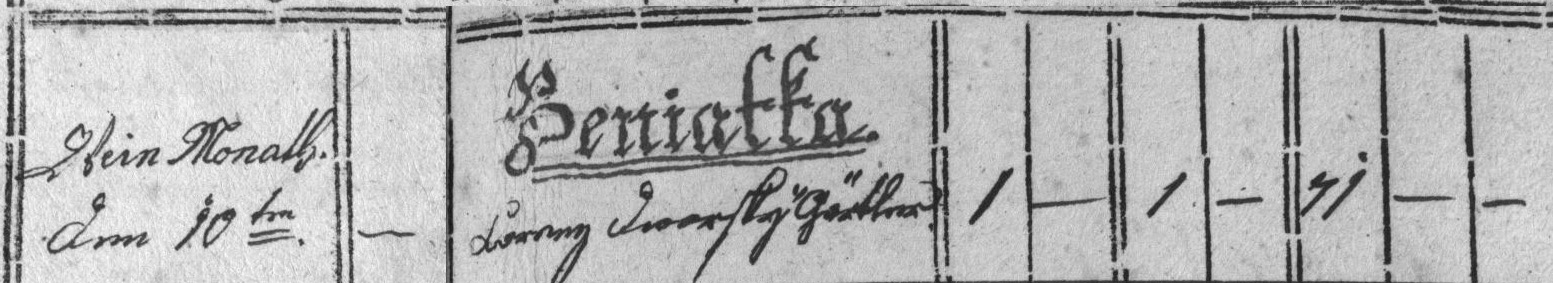 Wein Monath.
Den 10 ten.
—
Peniatka.
Lorenz Dworsky Gärtler
1 — 1 — 71 — —